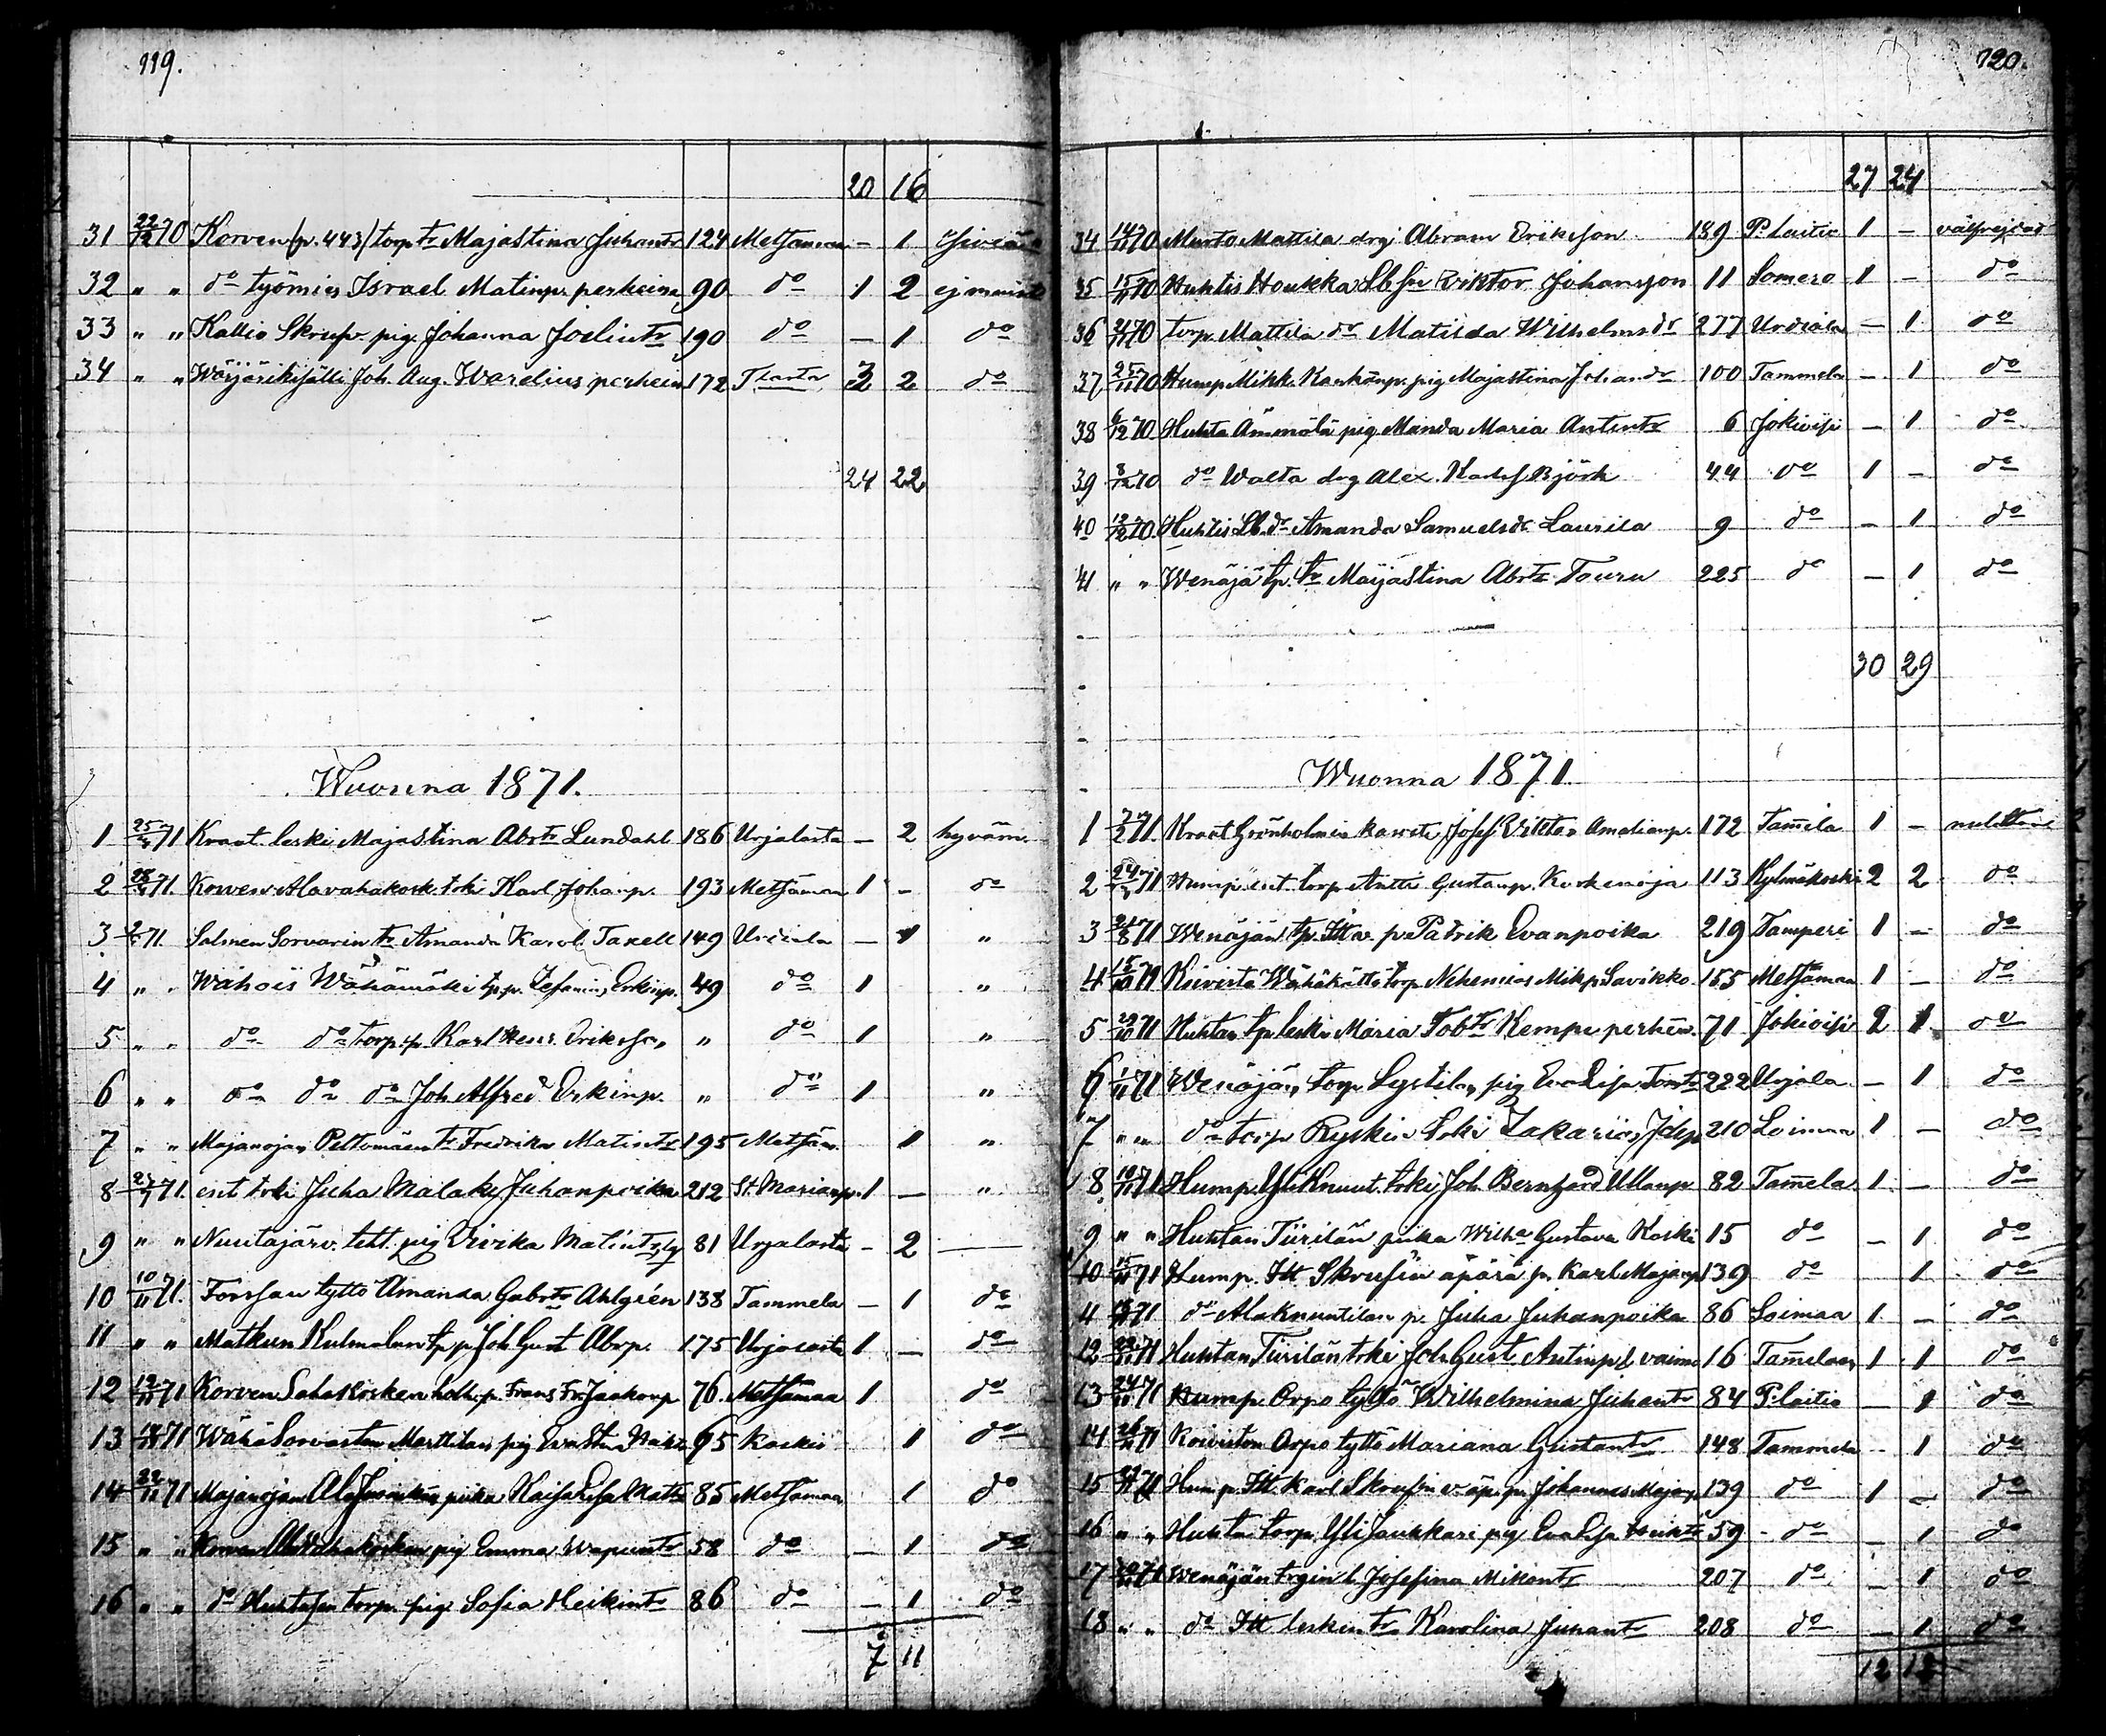 119.
20 16
31 22/12 70 Korven (p. 443) torp. tr Majastina Juhantr 124 Metsämaa – 1
32 " " do työmies Israel Matinp. perheina 90 do 1 2
33 " " Kallio Skrufv. pig. Johanna Joelintr 190 do – 1 do
34 " " Joh. Aug. Warelius perhein 172 3 2 do
24 22
Wuonna 1871.
1 71 leski Majastina Abrtr Lundahl 186 Urjalasta – 2 hyväm.
2 71. Korven Alavahakosk. trki Karl Johanp. 193 Metsämaa 1 – do
3 71. Salmen Sorvarin tr Amanda Karol. Taxell 149 Urdiala – 1 "
4 " " Wähois Wähämäki tp. p. Erkinp. 49 do 1 "
5 " " do do torp. p. Karl Henr. Eriksson " do 1 "
6 " " do do do Joh Alfred Erkinp. " do 1 "
7 " " Majanojan Peltomäen tr Fredrika Matintr 195 Metsäm. 1 "
8 71. ent trki Juha Malaky Juhanpoika 212 St. Marianp. 1 – "
9 " " Nuutajärv. teht. pig Vivika Matintr 81 Urjalasta – 2 —
10 10/11 71. Forssan tyttö Amanda Gabrtr Ahlgrén 138 Tammela – 1 do
11 " " Matkun Kulmalan tp p. Joh Gust Abrp. 175 1 – do
12 12/11 71 Korven Sahakosken p. Frans Fr. Jaakonp 76. Metsämaa 1 do
13 71 Wähä Sorvaston Marttilan pig Eva Stina 95 Koskis 1 do
14 22/11 71 Majanojan piika Kaisa Lisa Mattr 85 Metsämaa 1 do
15 " " Korven pig Emma 58 do – 1 do
16 " " do torp. pig Sofia Heikintr 86 do – 1 do
7 11
120.
27 24
34 14/11 70 Murto Mattila drg Abram Eriksson 189 P. Laitio 1 – välfrejdad
35 15/11 70 Huhtis Houkka Sbsn Viktor Johansson 11 Somero 1 – do
36 70 torp. Mattila dr Matilda Wilhelmsdr 277 Urdiala – 1 do
37 25/11 70 Hump. Mikk. pig Majastina Johansdr 100 Tammela – 1 do
38 6/12 70 Huhta Ämmälä pig Manda Maria Antintr 6 Jokioisi – 1 do
39 8/12 70 do Walta drg Alex. Karlss. Björk 44 do 1 – do
40 12/12 70. Huhtis Sb. dr Amanda Samuelsdr Laurila 9 do – 1 do
41 " " Wenäjä tp. tr Maijastina Abrtr Touru 225 do – 1 do
30 29
Wuonna 1871.
1 71. Grönholmin Josef Viktor Amalianp. 172 Tamela 1 –
2 71 Hump. ent. torp. Antti Gustanp. Koskenoja 113 Kylmäkoski 2 2 do
3 71 Wenäjän tp. Itt. p. Patrik Evanpoika 219 Tamperi 1 – do
4 15/10 71 Koivisto Wähäkättö torp Nehemias Mikp Savikko 155 Metsämaa 1 – do
5 71 Huhtan tp. leski Maria Tobtr Kempe perhen. 71 Jokioisi 2 1 do
6 1/11 71 Wenäjän torp Systilan pig Eva Lisa 222 Urjala – 1 do
7 " " do torp Ryskin trki Zakarias 210 Loimaa 1 – do
8 10/11 71 Hump. Yli Knuut. trki Joh. Bernhard Ullanp 82 Tamela 1 – do
9 " " Huhtan Tiirilän piika Wilha Gustava Koski 15 do – 1 do
10 71 Hump. Itt Skrufin äpärä p. Karl Majanp 139 do 1 do
4 71 do Alaknuutilan p. Juha Juhanpoika 86 Loimaa 1 – do
12 22/11 71 Huhtan Tiirilän trki Joh Gust Antinp & vaimo 16 Tamelaan 1 1 do
13 24/11 71 Hump. Orpo tyttö Wilhelmina Juhantr 84 P. Laitio – 1 do
14 71 Koiviston Orpo tyttö Mariana Gustantr 148 Tammela – 1 do
15 71 Hump. Itt Karl Skrufin äp. p. Johannes Majanp 139 do 1 – do
16 " " Huhta torp. Yli Jaukkari pig Eva Lisa Heiktr 59 do – 1 do
17 71 Wenäjän l. Josefina Mikontr 207 do – 1 do
18 " " do Itt lesken tr Karolina Juhantr 208 do – 1 do
12 12